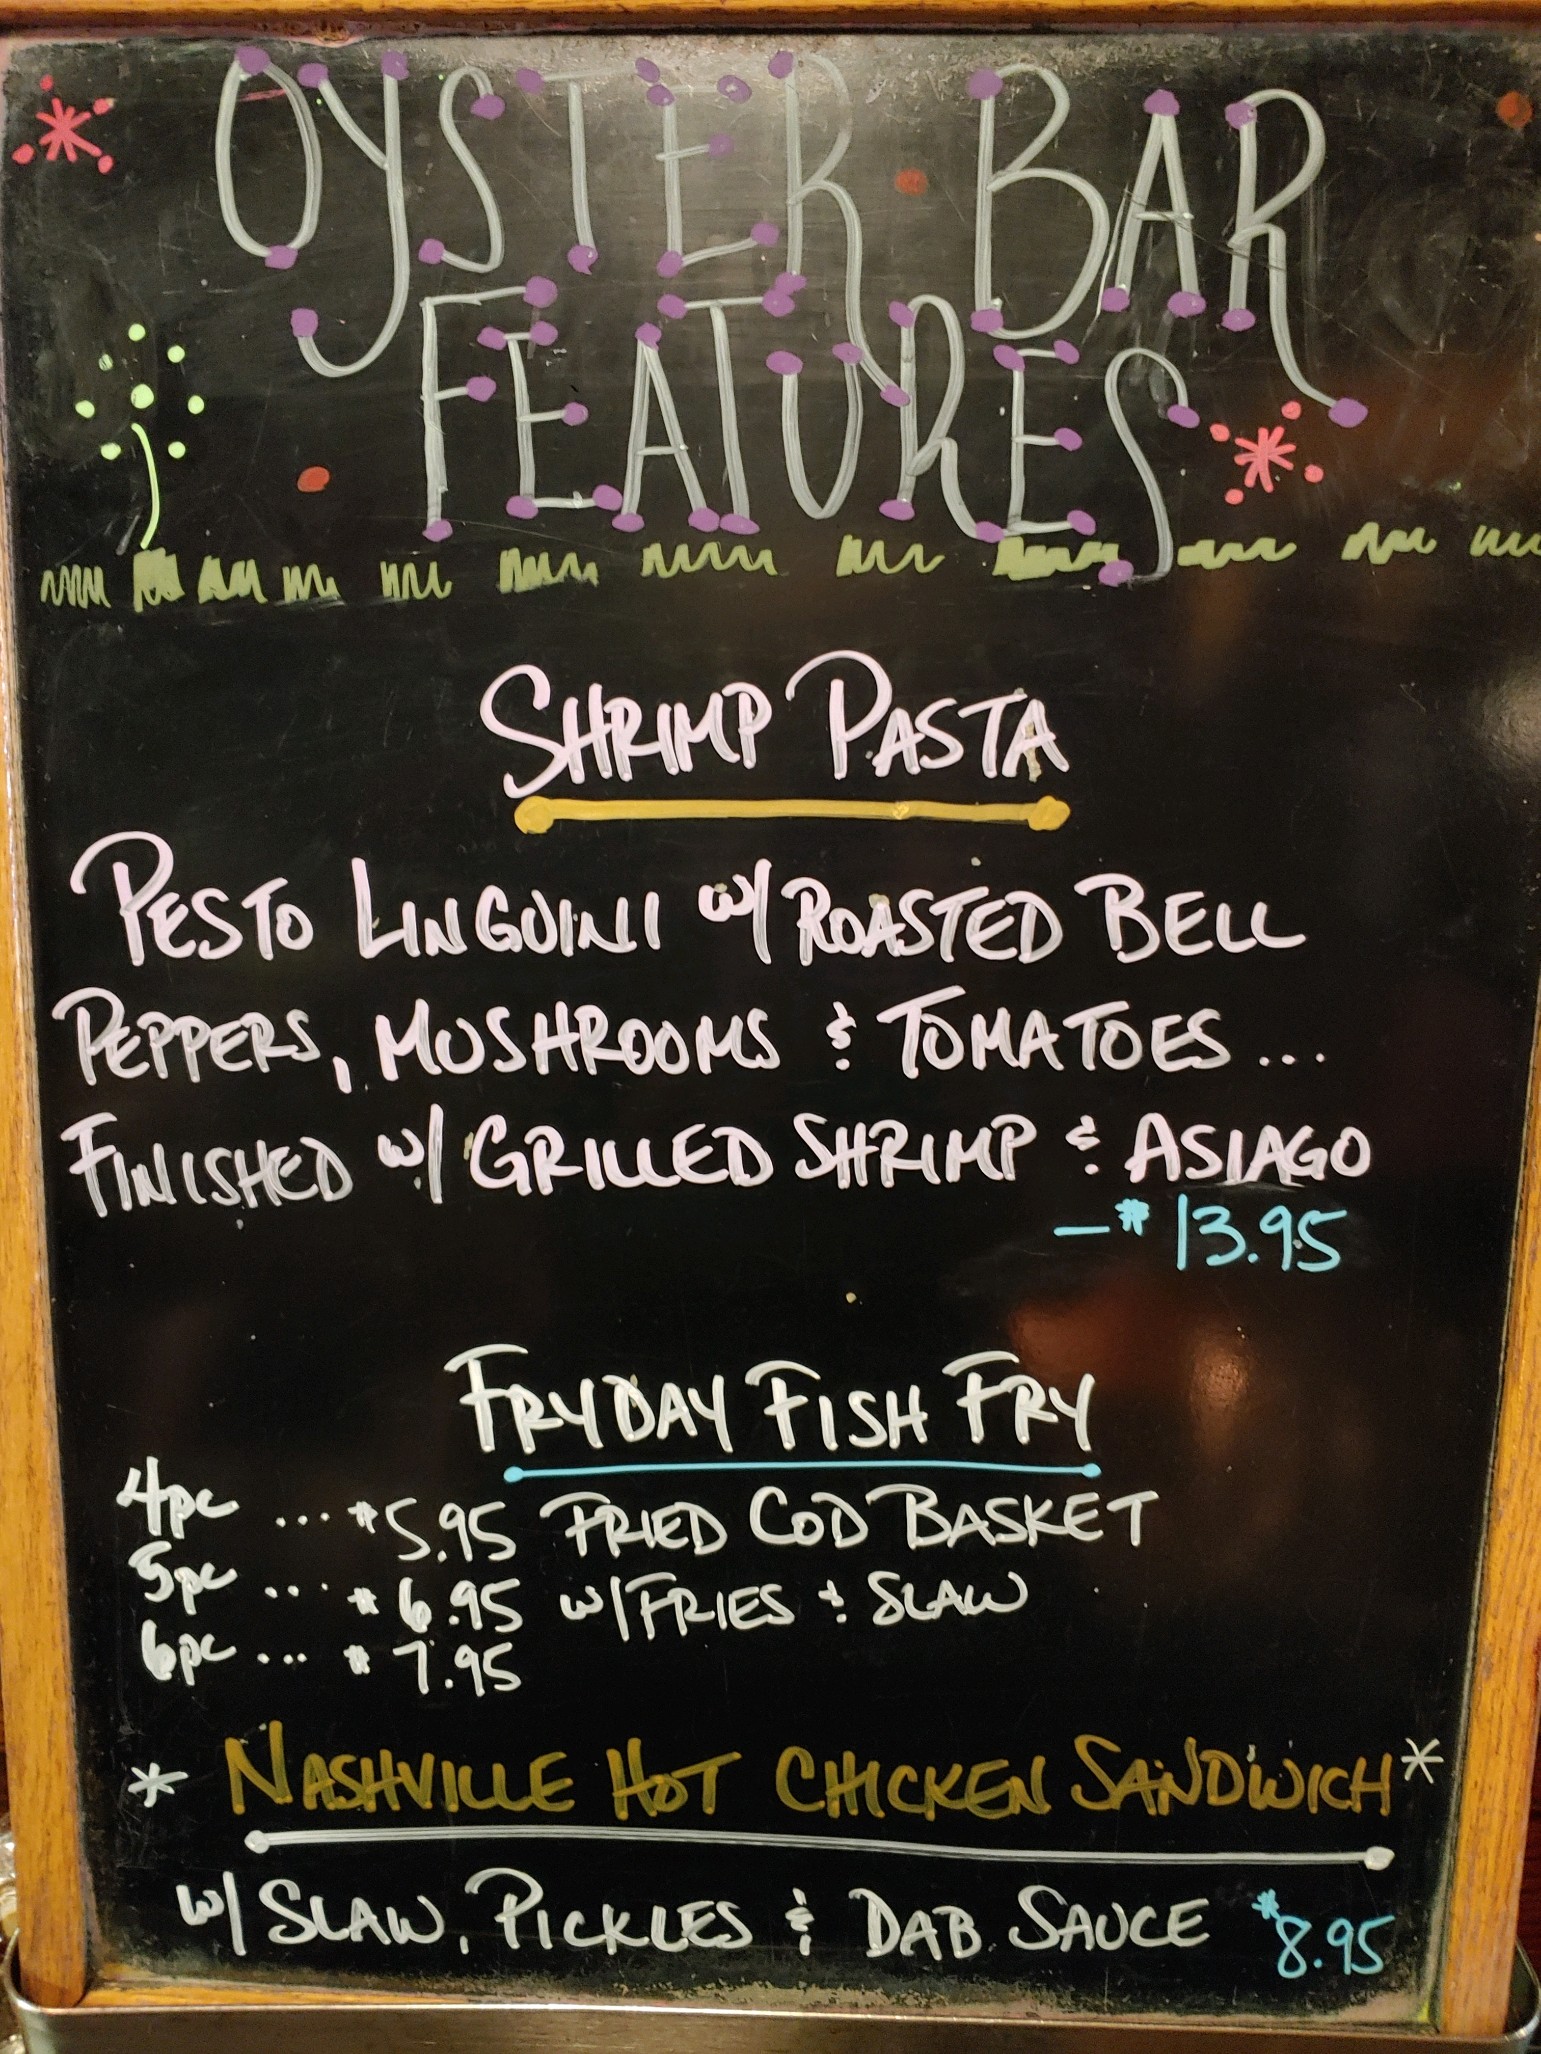 OYSTER BAR
FEATURES
SHRIMP PASTA
PESTO LINGUINI W/ ROASTED BELL
PEPPERS, MUSHROOMS & TOMATOES ...
FINISHED W/ GRILLED SHRIMP & ASIAGO
- $13.95
FRYDAY FISH FRY
4pc ... $5.95 FRIED COD BASKET
5pc ... $6.95 W/ FRIES & SLAW
6pc ... $7.95
* NASHVILLE HOT CHICKEN SANDWICH *
W/ SLAW, PICKLES & DAB SAUCE $8.95